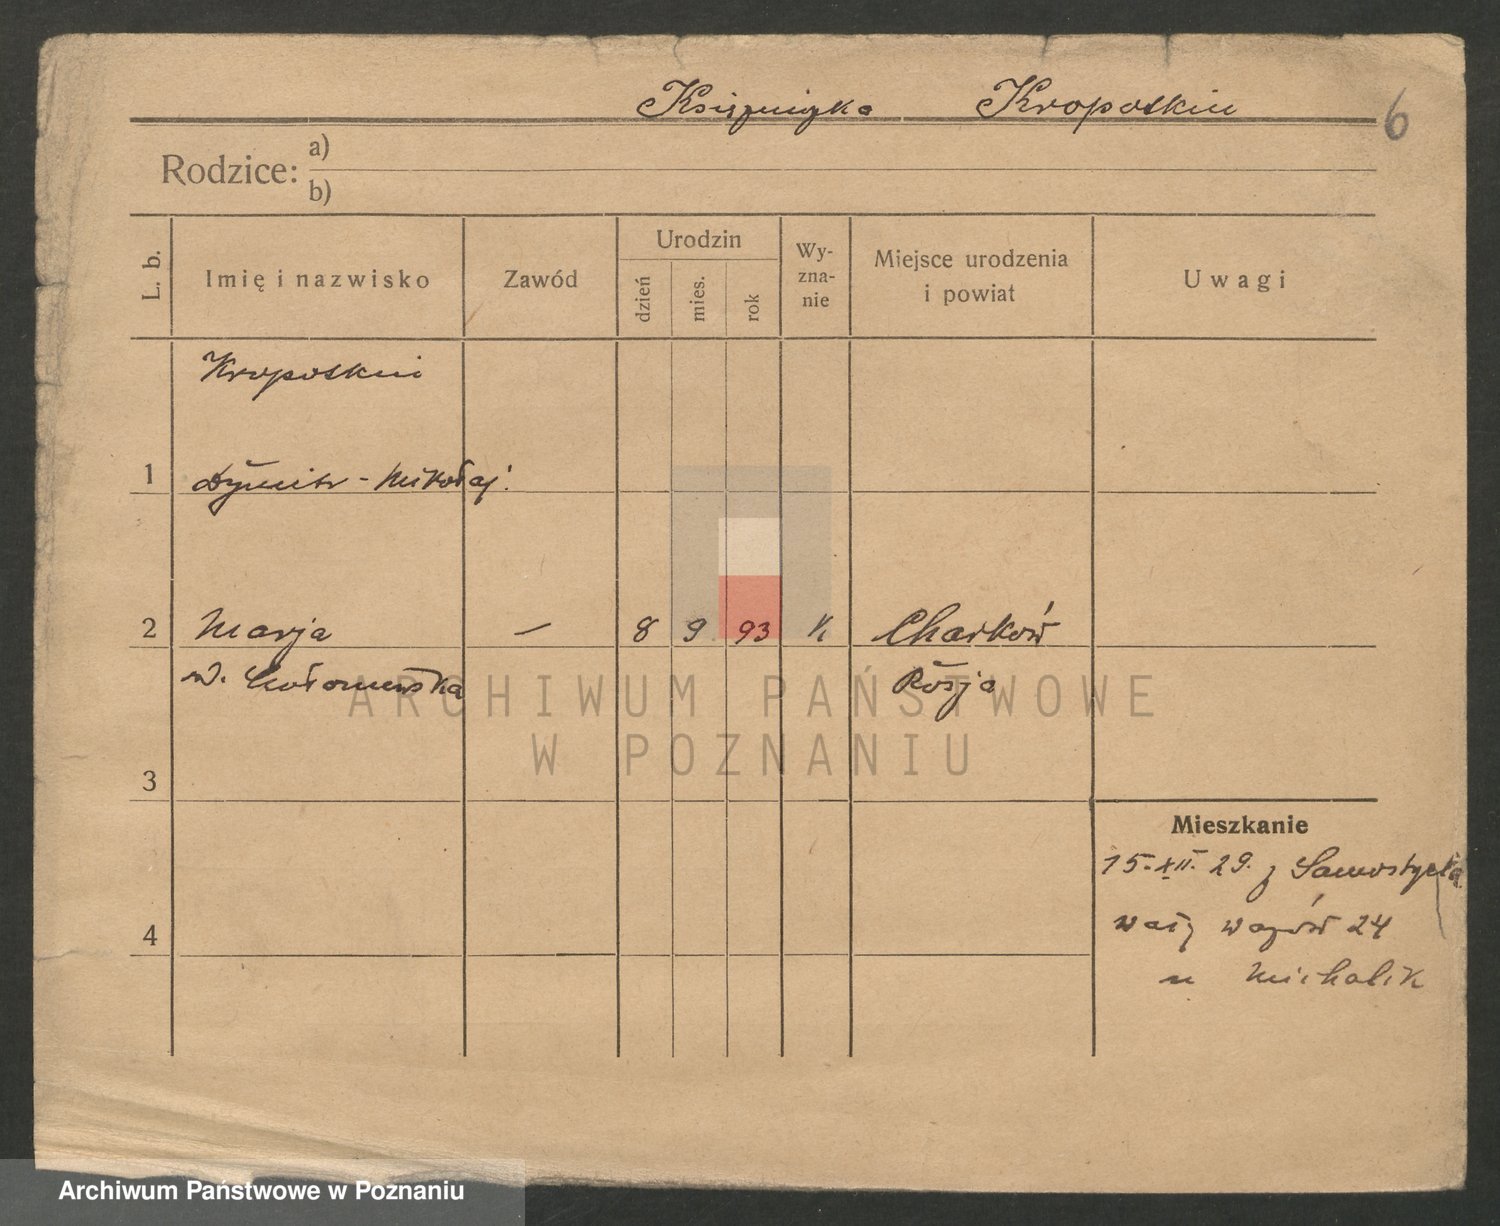 Księżniczka Kropotkin
6
Rodzice: a)
b)
L. b.
Imię i nazwisko
Zawód
Urodzin
dzień
mies.
rok
Wy-
zna-
nie
Miejsce urodzenia
i powiat
Uwagi
Kropotkin
1 Dymitr - Mikołaj
2 Marja — 8 9 93 Charków
Rosja
ARCHIWUM PAŃSTWOWE
W POZNANIU
3
Mieszkanie
15.XII.29. z
4
Wały Wazów 24
u Michalik
Archiwum Państwowe w Poznaniu